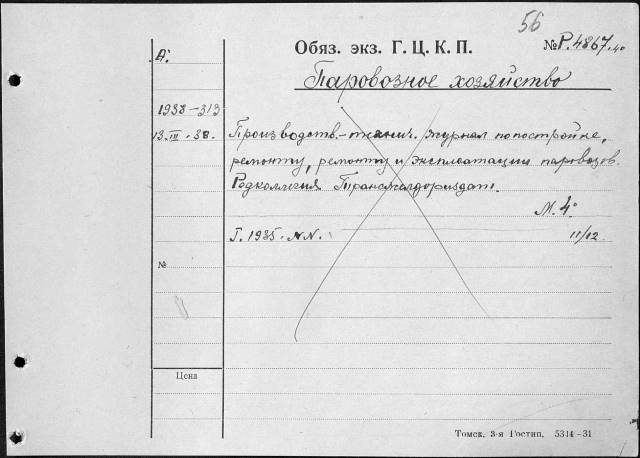 56
Обяз. экз. Г. Ц. К. П.
№ Р. 4867.40
А.
Паровозное хозяйство
1938-313
13.III.38.
Производств.-технич. журнал по постройке,
ремонту, ремонту и эксплоатации паровозов.
Редколлегия Трансжелдориздат.
М. 4°
Г. 1935. NN.
11/12
№
Цена
Томск, 3-я Гостип. 5314-31